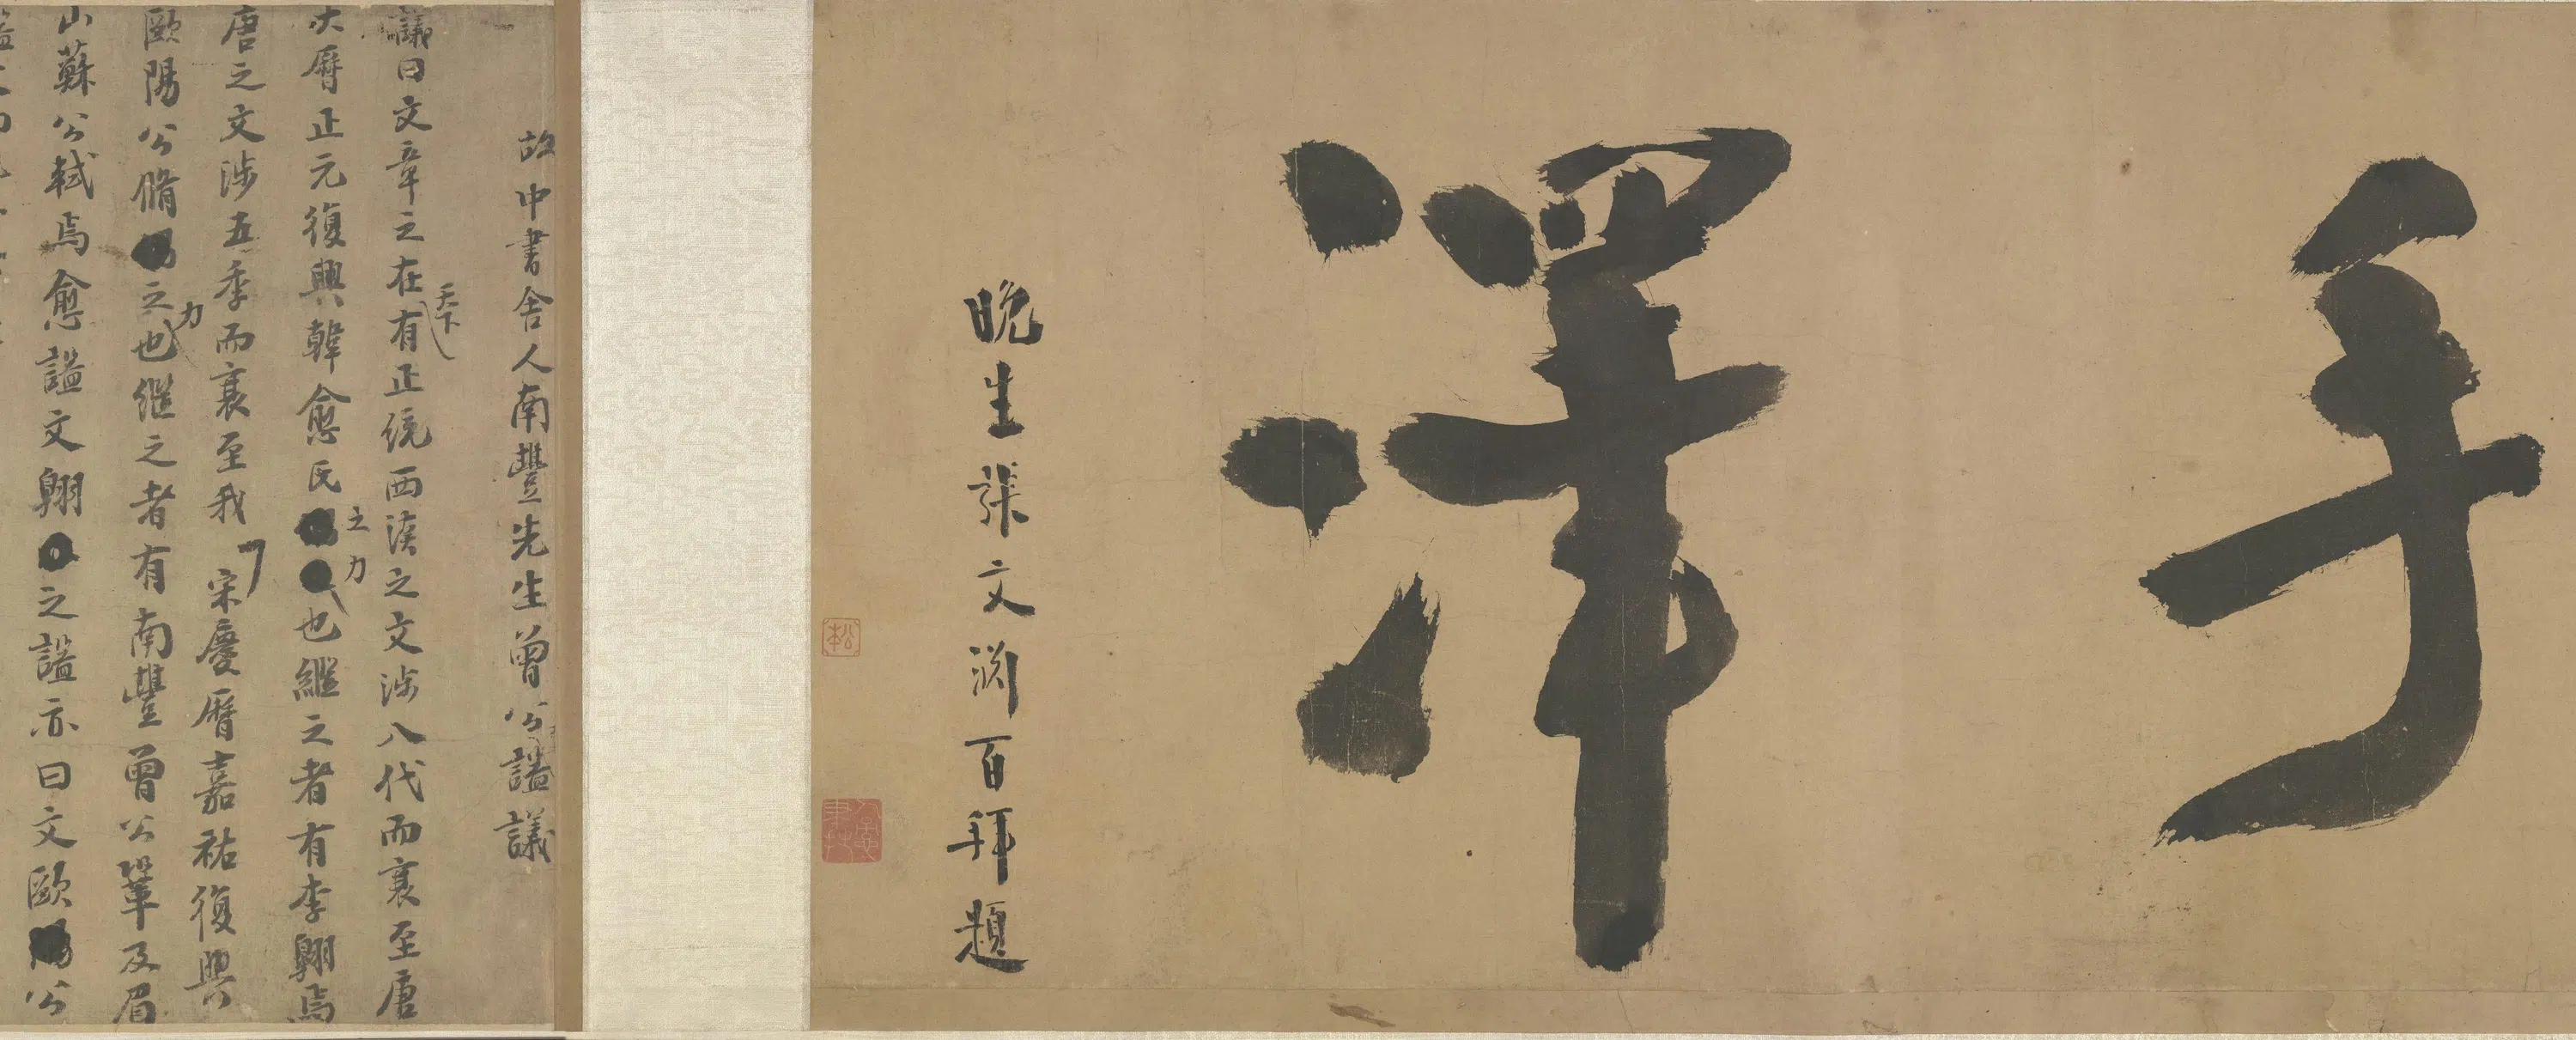 手澤
晚生張文淵百拜題
松
故中書舍人南豐先生曾公謚議
議曰文章之在天下有正統西漢之文涉八代而衰至唐
大曆正元復興韓愈氏之力也繼之者有李翱焉
唐之文涉五季而衰至我宋慶曆嘉祐復興
歐陽公脩之力也繼之者有南豐曾公鞏及眉
山蘇公軾焉愈謚文翱之謚亦曰文歐陽公